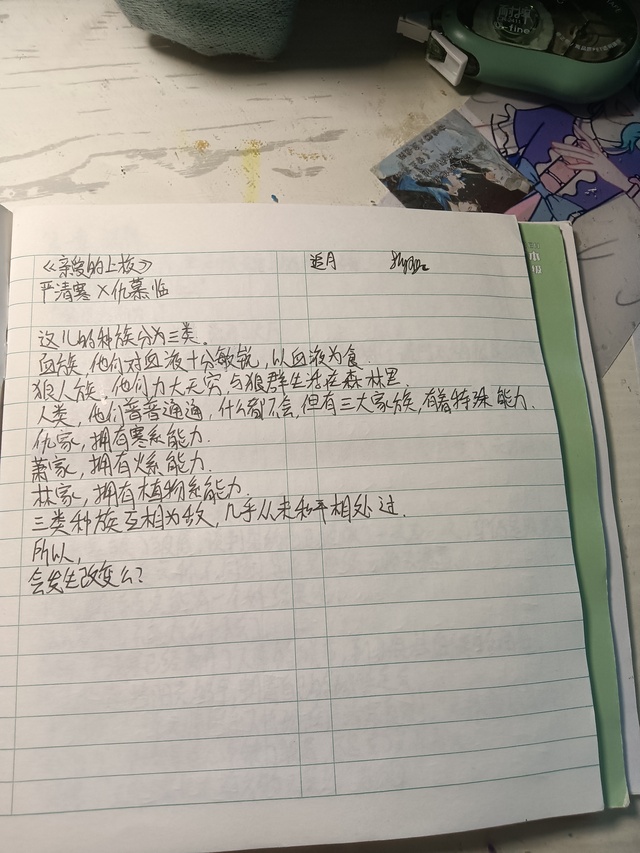 《亲爱的上校》 追月
严清寒×仇慕临
这儿的种族分为三类.
血族,他们对血液十分敏锐,以血液为食.
狼人族,他们力大无穷,与狼群生活在森林里.
人类,他们普普通通,什么都不会,但有三大家族,有着特殊能力.
仇家,拥有寒系能力.
萧家,拥有火系能力.
林家,拥有植物系能力.
三类种族互相为敌,几乎从未和平相处过.
所以,
会发生改变么?
fine
本